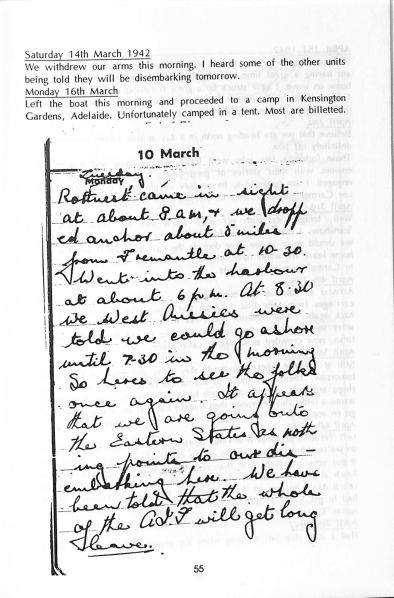 Saturday 14th March 1942
We withdrew our arms this morning. I heard some of the other units
being told they will be disembarking tomorrow.
Monday 16th March
Left the boat this morning and proceeded to a camp in Kensington
Gardens, Adelaide. Unfortunately camped in a tent. Most are billetted.
10 March
Tuesday.
Monday
Rottnest came in sight
at about 8 am, & we dropp
ed anchor about 5 miles
from Fremantle at 10-30.
Went into the harbour
at about 6 p.m. At 8.30
we West Aussies were
told we could go ashore
until 7-30 in the morning
So heres to see the folks
once again. It appears
that we are going onto
the Eastern States as noth
ing points to our dis-
embarking here. We have
been told that the whole
of the A.I.F will get long
leave.
55